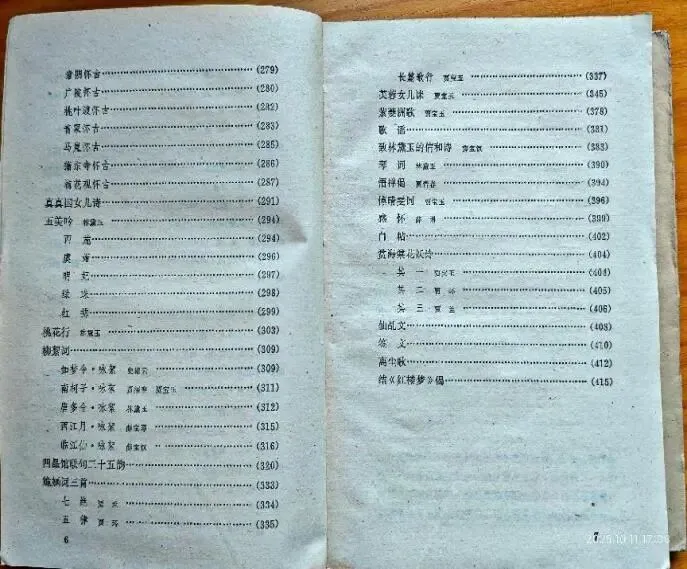 淮阴怀古……(279)
广陵怀古……(280)
桃叶渡怀古……(282)
青冢怀古……(283)
马嵬怀古……(285)
蒲东寺怀古……(286)
梅花观怀古……(287)
真真国女儿诗……(291)
五美吟 林黛玉……(294)
西施……(294)
虞姬……(296)
明妃……(297)
绿珠……(298)
红拂……(299)
桃花行 林黛玉……(303)
柳絮词……(309)
如梦令·咏絮 史湘云……(309)
南柯子·咏絮 贾探春 贾宝玉……(311)
唐多令·咏絮 林黛玉……(312)
西江月·咏絮 薛宝琴……(315)
临江仙·咏絮 薛宝钗……(316)
凹晶馆联句三十五韵……(320)
姽婳词三首……(333)
七绝 贾兰……(334)
五律 贾环……(335)
6
长篇歌行 贾宝玉……(337)
芙蓉女儿诔 贾宝玉……(345)
紫菱洲歌 贾宝玉……(378)
歌谣……(381)
致林黛玉的信和诗 薛宝钗……(383)
琴词 林黛玉……(390)
悟禅偈 贾惜春……(394)
贾宝玉……(396)
感怀 薛蝌……(399)
……(402)
赏海棠花妖诗……(404)
其一 贾宝玉……(404)
其二 贾环……(405)
其三 贾兰……(406)
仙乩文……(408)
签文……(410)
离尘歌……(412)
结《红楼梦》偈……(415)
7
2025.10.11 17:36